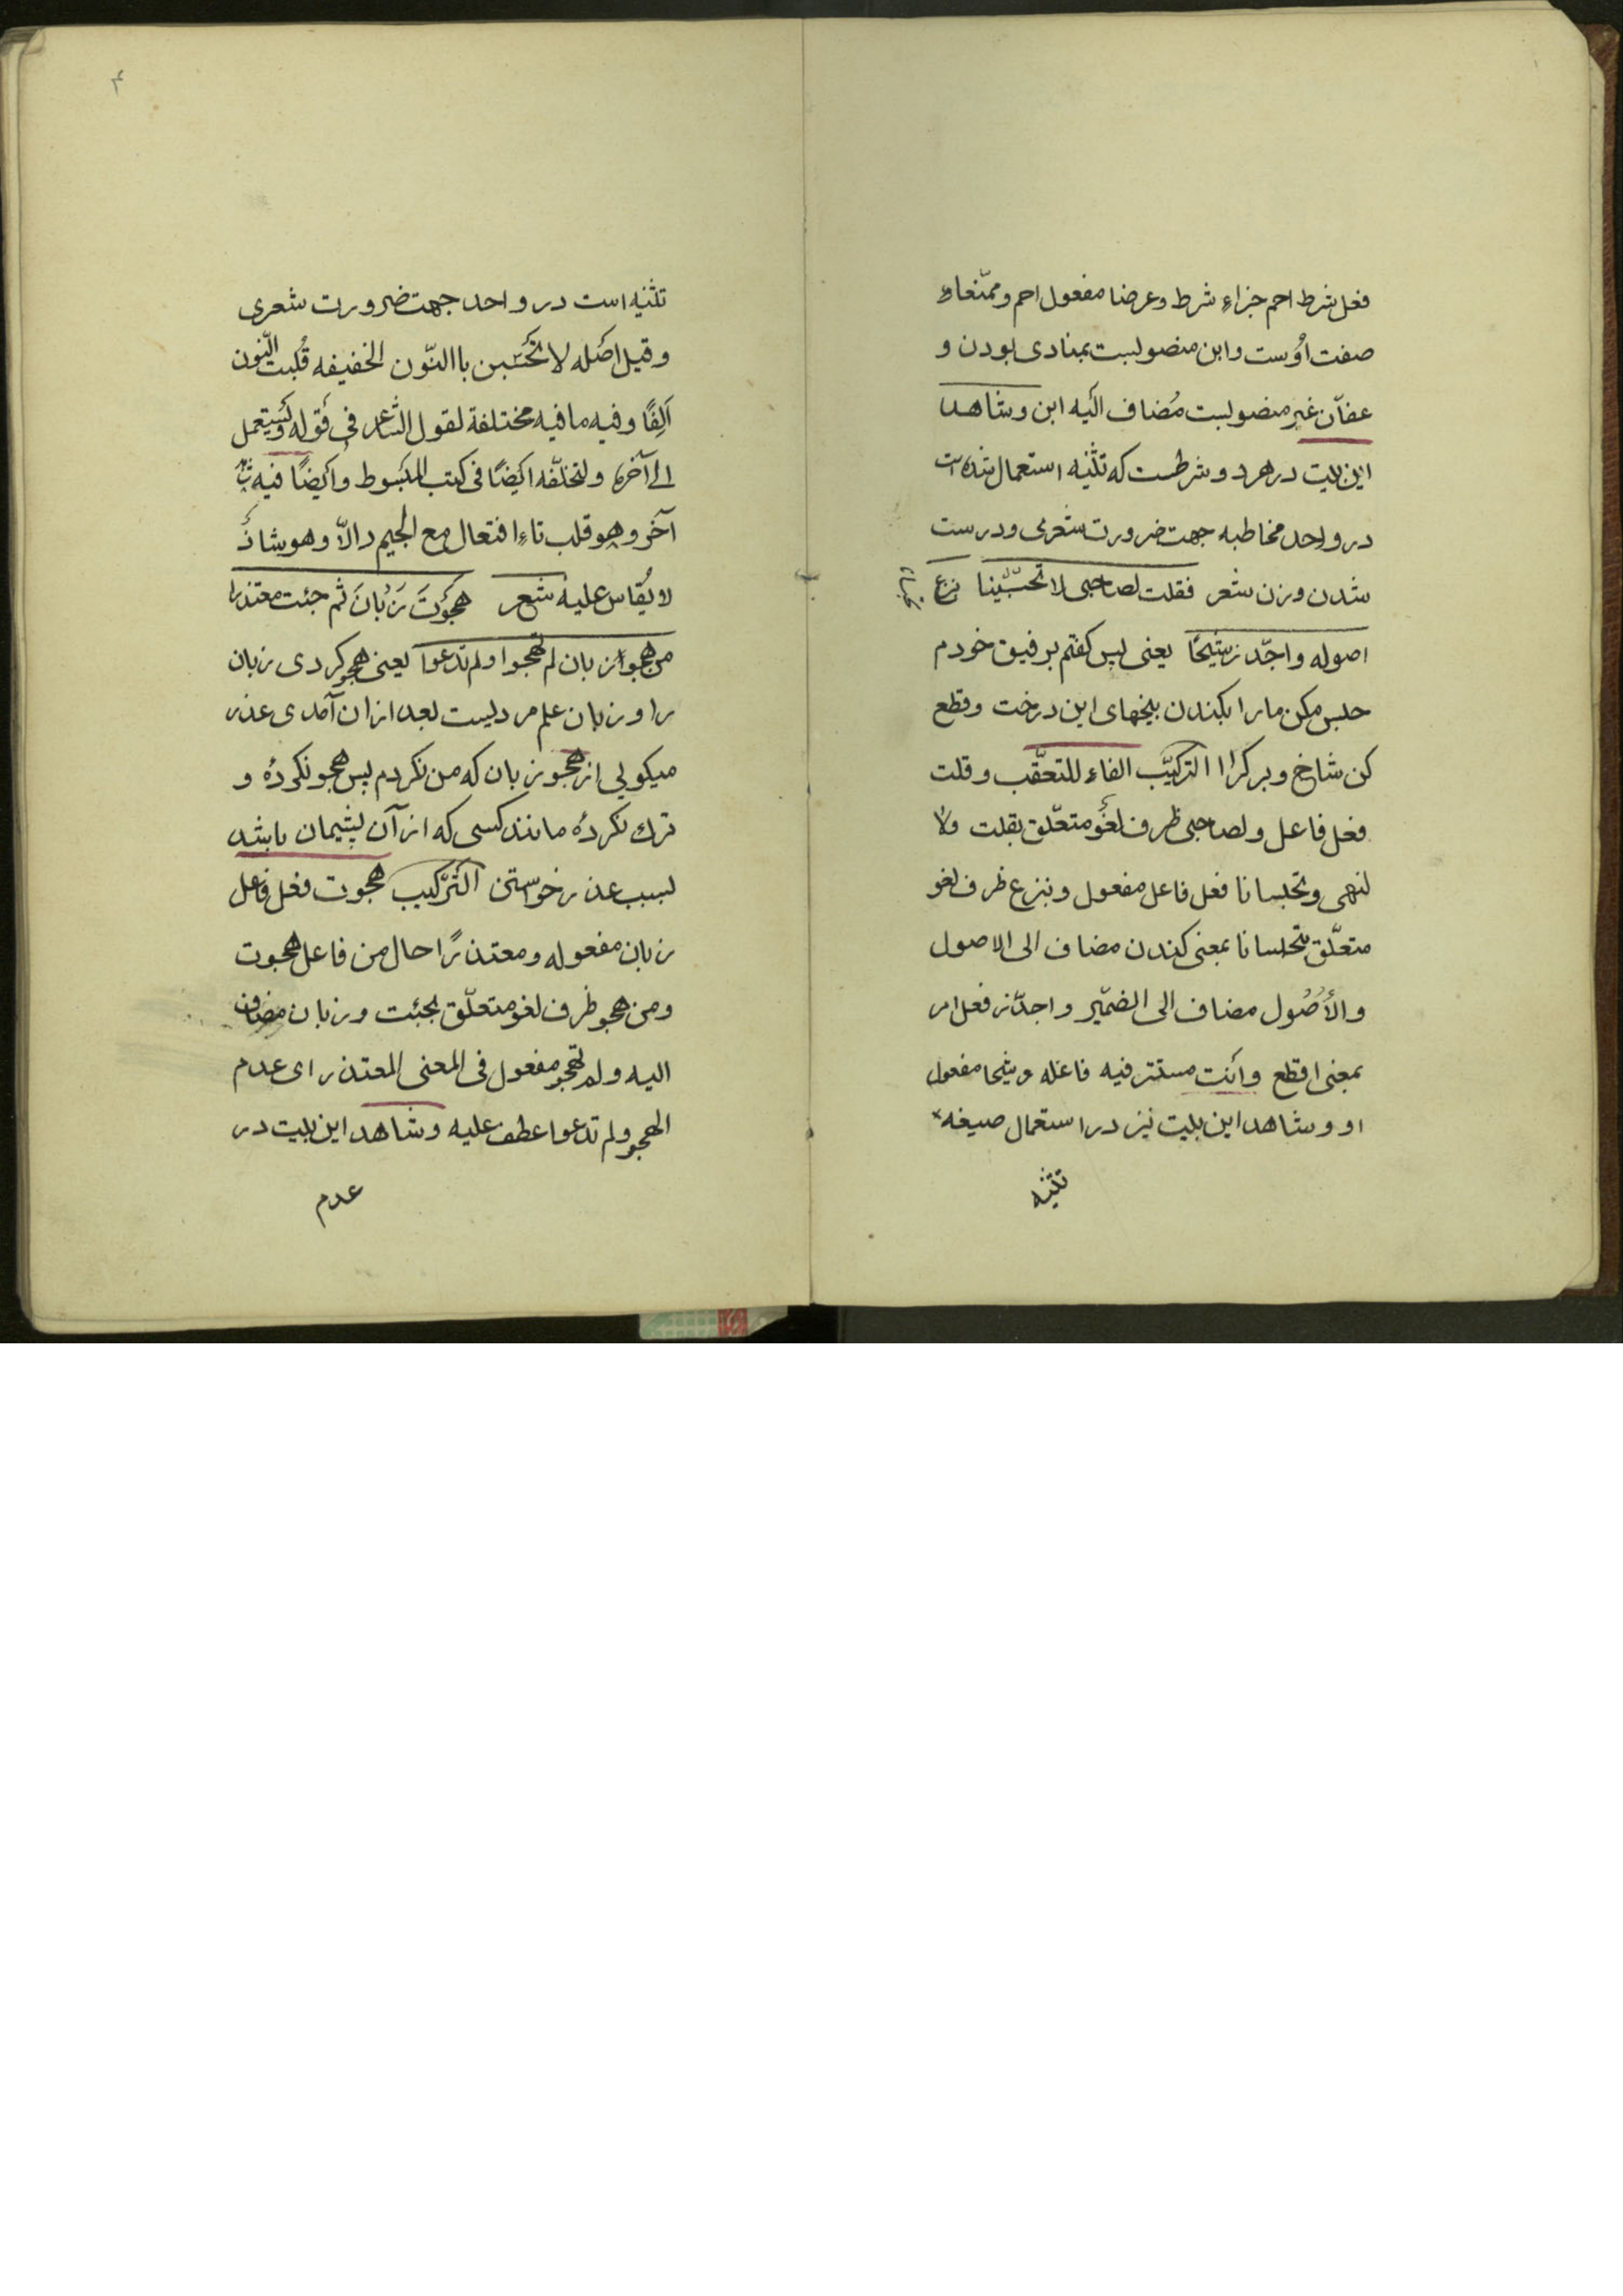 فعل شرط احم جزاء شرط وعرضا مفعول احم وممنّعا
صفت اوُست وابن منصوبست بمنادى بودن و
عفاّن غير منصوبست مُضاف اليه ابن وشاهد
اين بيت در هرد و شرطست كه تثنيه استعمال شده است
در واحد مخاطبه جهت ضرورت شعرى ودرست
شدن وزن شعر فقلت لصاحبى لا تحبسينا
اصوله واجدّز شيحًا يعنى پس كفتم بر فيق خودم
حبس مكن مارا بكندن بيخهاى اين درخت وقطع
كن شاخ وبر كرا التركيب الفاء للتعقّب وقلت
فعل فاعل ولصاحبى ظرف لغو متعلّق بقلت ولا
لنهى وتحبسانا فعل فاعل مفعول وبنزع ظرف لغو
متعلّق بتحبسانا بمعنى كندن مضاف الى الاصول
والأُصُول مضاف الى الضمّير واجدّز فعل امر
بمعنى اقطع وانت مستتر فيه فاعله وشيحا مفعول
او وشاهد اين بيت نيز در استعمال صيغه
تثنيه
۴
تثنيه است در واحد جهت ضرورت شعرى
وقيل اصله لا تحبسن باالنّون الخفيفه قُلبت النّون
اَلِفًا وفيه ما فيه مختلفة لقول الشاعر فى قوله وَيستعمل
الى آخره ولتخلّفه ايضًا فى كتب المبسوط وايضًا فيه
آخر وهو قلب تاءِ افتعال مع الجيم دالاّ وهو شاذ
لا يُقاس عليه شعر هجوَتَ زَبانَ ثم جئت معتذرا
من هجو زبان لم تهجوا ولم تدعوا يعنى هجو كردى زبان
را وزبان علم مرديست بعد از ان آمدى عذر
ميكويى از هجو زبان كه من نكردم پس هجو نكردُه و
ترك نكردُه مانند كسى كه از آن پشيمان باشد
بسبب عذر خواستن التّركيب هجوت فعل فاعل
زبان مفعوله ومعتذرًا حال من فاعل هجوت
ومن هجو ظرف لغو متعلّق بجئت وزبان مضاف
اليه ولم تهجو مفعول فى المعنى المعتذر اى عدم
الهجو ولم تدعوا عطف عليه وشاهد اين بيت در
عدم